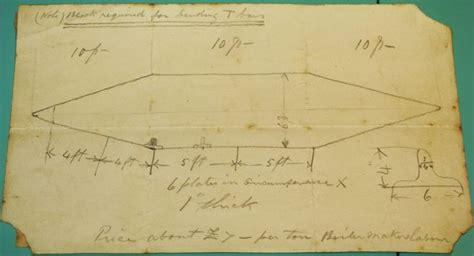 (Note) Block required for bending T bars
10ft 10ft 10ft
6 ft
4ft 4ft 5ft 5ft
6 plates in circumference X
1" thick
6
Price about £7 - per ton Boiler makers labour